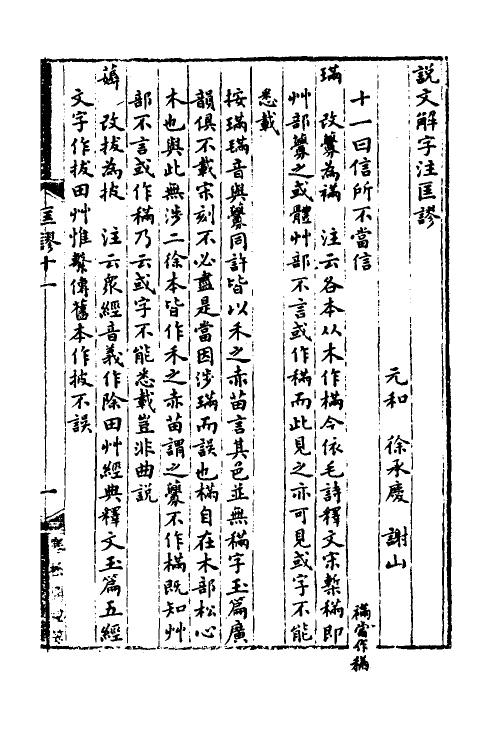 說文解字注匡謬
元和　徐承慶　謝山
十一曰信所不當信
樠當作𥡥
璊　改虋為𥡥　注云各本从木作樠今依毛詩釋文宋槧𥡥即
艸部虋之或體艸部不言或作𥡥而此見之亦可見或字不能
悉載
按璊璊音與虋同許皆以禾之赤苗言其色並無𥡥字玉篇廣
韻俱不載宋刻不必盡是當因涉璊而誤也樠自在木部松心
木也與此無涉二徐本皆作禾之赤苗謂之虋不作樠既知艸
部不言或作𥡥乃云或字不能悉載豈非曲說
薅　改拔為披　注云眾經音義作除田艸經典釋文玉篇五經
文字作拔田艸惟繫傳舊本作披不誤
匡謬十一
一